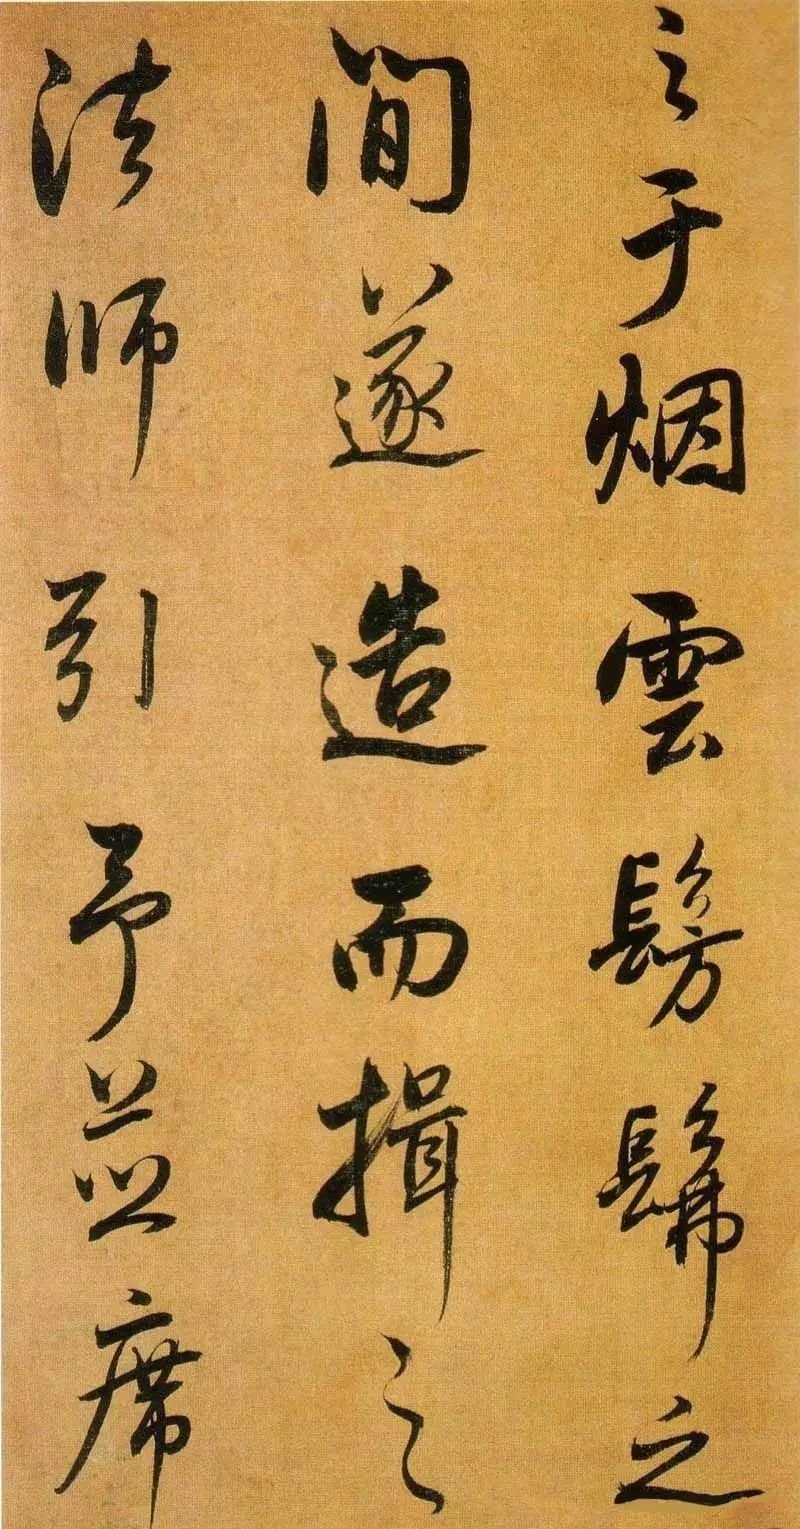 之于烟雲髣髴之
間遂造而揖之
法师引予並席